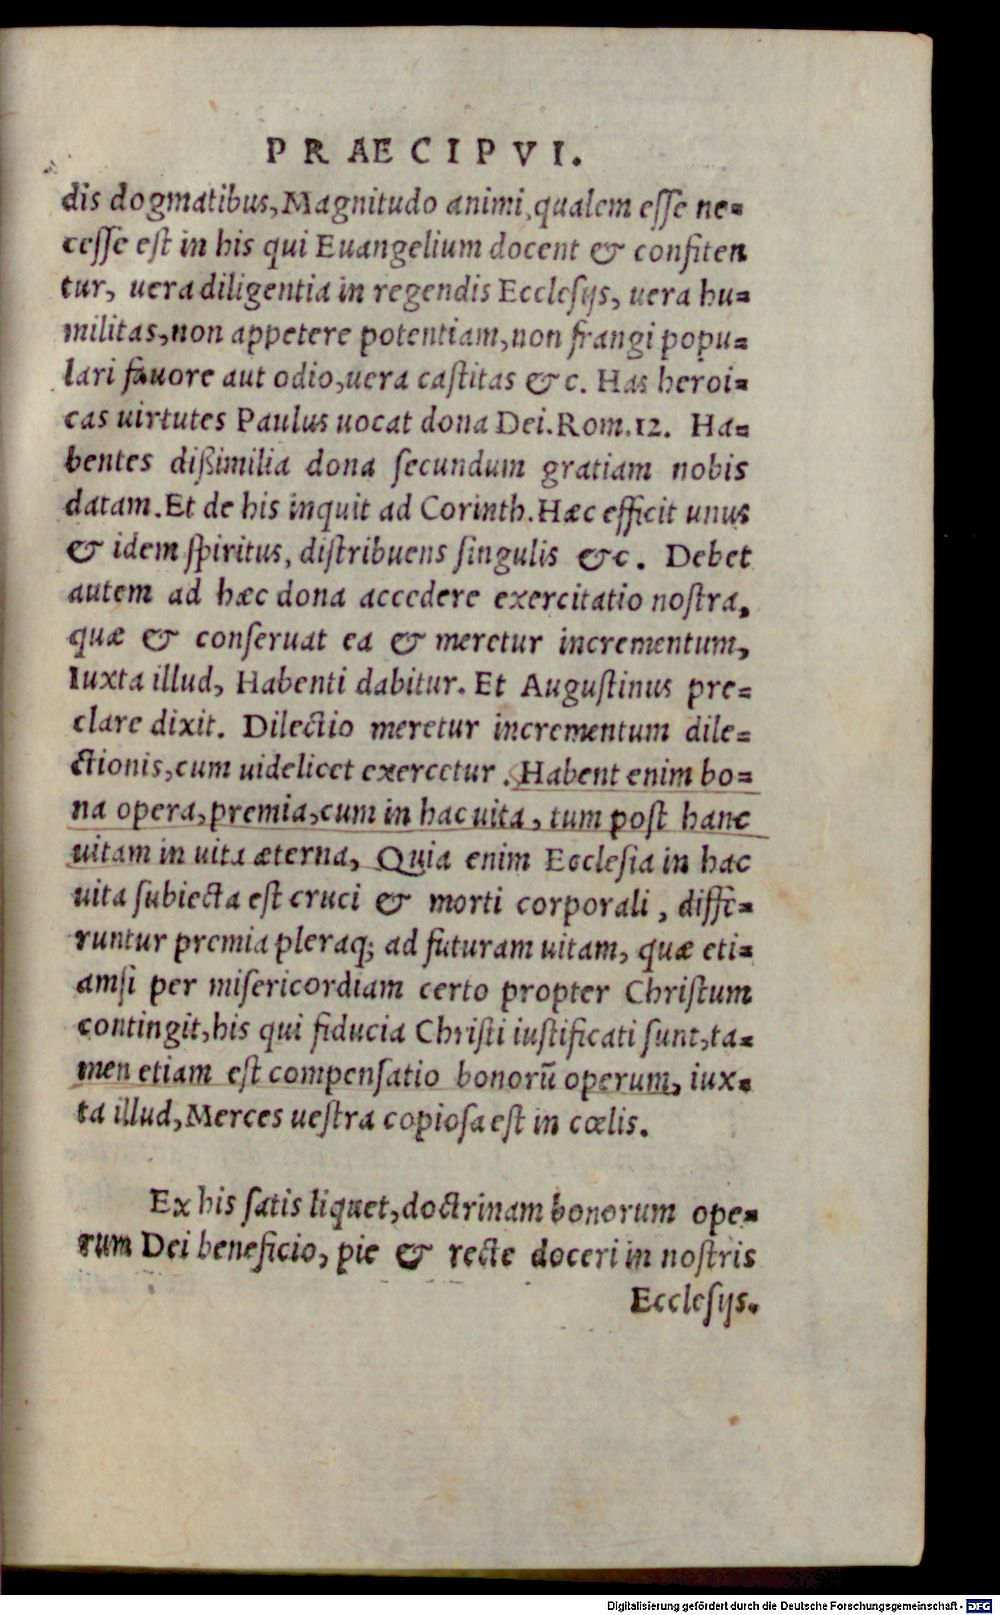 PRAECIPVI.
dis dogmatibus, Magnitudo animi, qualem esse ne=
cesse est in his qui Euangelium docent & confiten
tur, uera diligentia in regendis Ecclesijs, uera hu=
militas, non appetere potentiam, non frangi popu=
lari fauore aut odio, uera castitas &c. Has heroi=
cas uirtutes Paulus uocat dona Dei. Rom. 12. Ha=
bentes dißimilia dona secundum gratiam nobis
datam. Et de his inquit ad Corinth. Hæc efficit unus
& idem spiritus, distribuens singulis &c. Debet
autem ad hæc dona accedere exercitatio nostra,
quæ & conseruat ea & meretur incrementum,
Iuxta illud, Habenti dabitur. Et Augustinus pre=
clare dixit. Dilectio meretur incrementum dile=
ctionis, cum uidelicet exercetur. Habent enim bo=
na opera, premia, cum in hac uita, tum post hanc
uitam in uita æterna, Quia enim Ecclesia in hac
uita subiecta est cruci & morti corporali, diffe=
runtur premia pleraq; ad futuram uitam, quæ eti=
amsi per misericordiam certo propter Christum
contingit, his qui fiducia Christi iustificati sunt, ta=
men etiam est compensatio bonorū operum, iux=
ta illud, Merces uestra copiosa est in cœlis.
Ex his satis liquet, doctrinam bonorum ope=
rum Dei beneficio, pie & recte doceri in nostris
Ecclesijs.
Digitalisierung gefördert durch die Deutsche Forschungsgemeinschaft - DFG